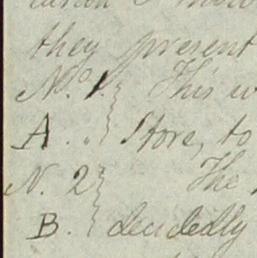 they present
No. 1 } This
A. . } Store, to
N. 2 } The
B. } decidedly